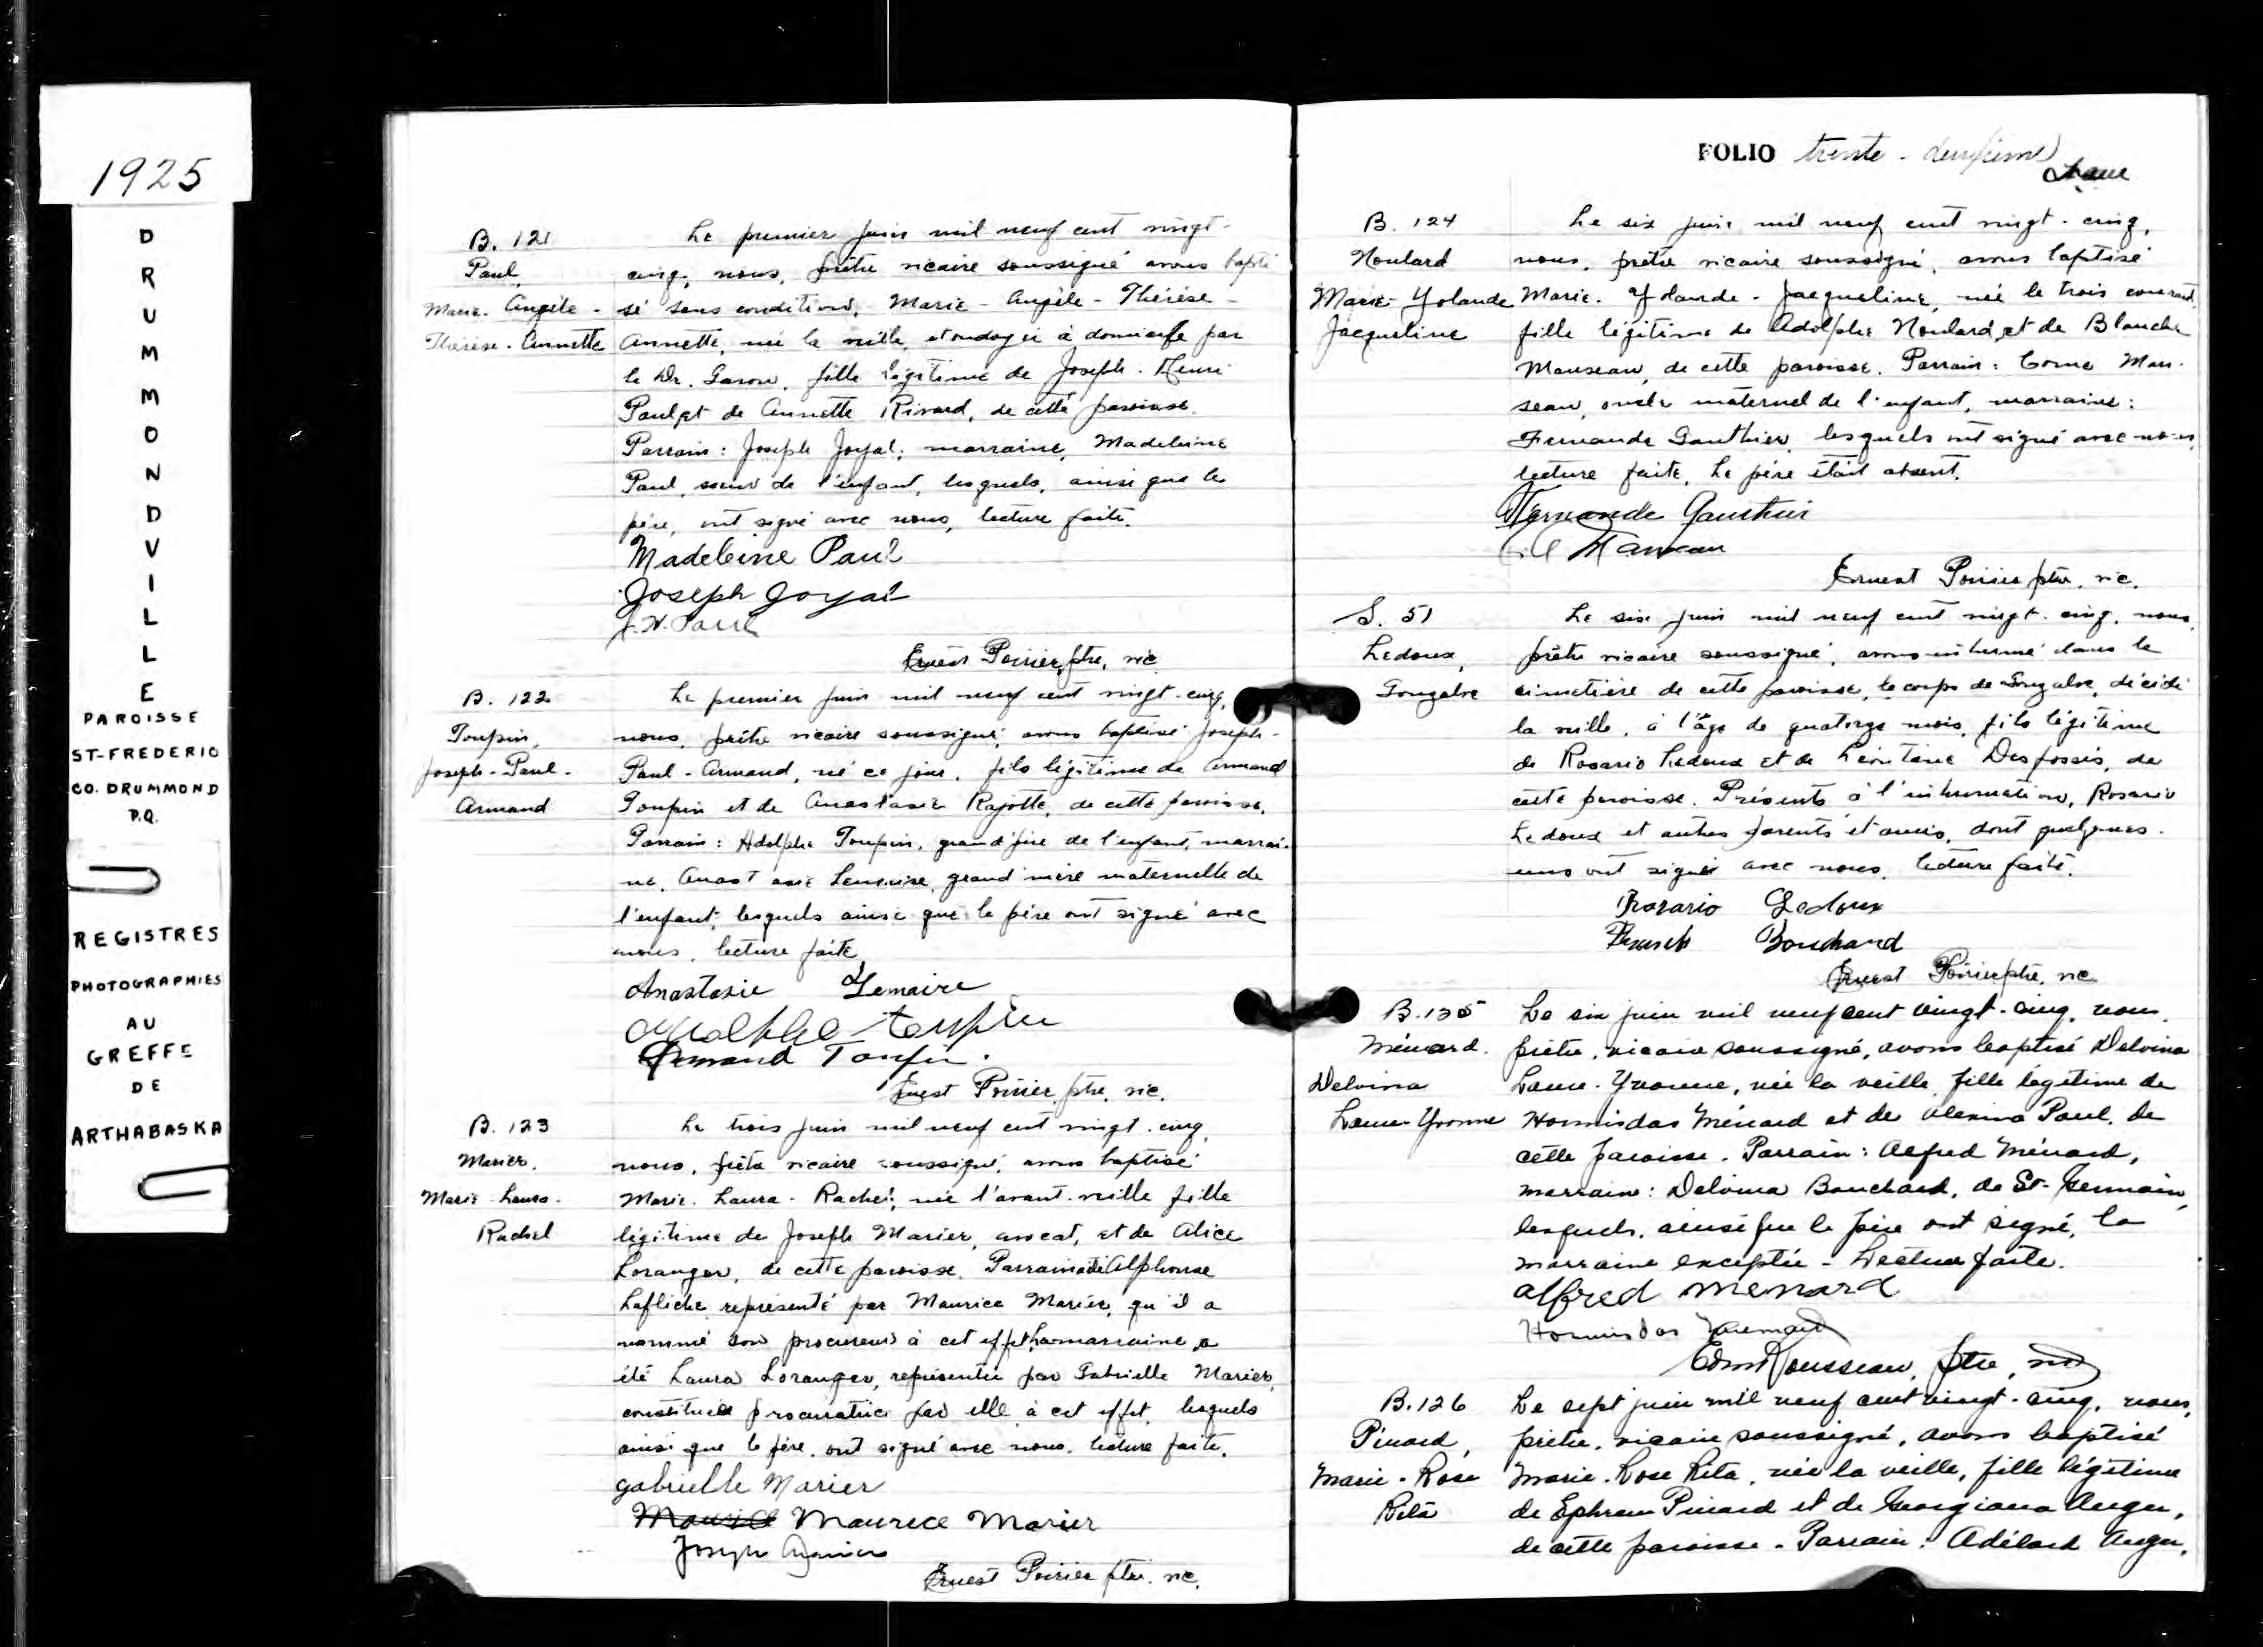 1925
DRUMMONDVILLE
PAROISSE
ST-FREDERIC
CO. DRUMMOND
P.Q.
REGISTRES
PHOTOGRAPHIES
AU
GREFFE
DE
ARTHABASKA
B. 121
Paul,
Marie-Angèle-
Thérèse-Annette
Le premier juin mil neuf cent vingt-
cinq, nous, prêtre vicaire soussigné avons bapti
sé sous condition, Marie-Angèle-Thérèse-
Annette, née la veille, et ondoyée à domicile par
le Dr. Garon, fille légitime de Joseph-Henri
Paul et de Annette Rivard, de cette paroisse.
Parrain: Joseph Joyal; marraine, Madeleine
Paul, soeur de l'enfant, lesquels, ainsi que le
père, ont signé avec nous, lecture faite.
Madeleine Paul
Joseph Joyal
J.H. Paul
Ernest Poirier ptre, vic.
B. 122
Toupin,
Joseph-Paul-
Armand
Le premier juin mil neuf cent vingt-cinq,
nous, prêtre vicaire soussigné, avons baptisé Joseph-
Paul-Armand, né ce jour, fils légitime de Armand
Toupin et de Anastasie Rajotte, de cette paroisse.
Parrain: Adolphe Toupin, grand'père de l'enfant, marrai-
ne, Anastasie Lemaire, grand'mère maternelle de
l'enfant, lesquels ainsi que le père ont signé avec
nous, lecture faite
Anastasie Lemaire
Adolphe Toupin
Armand Toupin.
Ernest Poirier, ptre, vic.
B. 123
Marier,
Marie-Laura-
Rachel
Le trois juin mil neuf cent vingt-cinq,
nous, prêtre vicaire soussigné, avons baptisé
Marie-Laura-Rachel, née l'avant-veille fille
légitime de Joseph Marier, avocat, et de Alice
Loranger, de cette paroisse. Parrain Alphonse
Laflèche représenté par Maurice Marier, qu'il a
nommé son procureur à cet effet. La marraine a
été Laura Loranger, représentée par Gabrielle Marier,
constituée procuratrice par elle à cet effet, lesquels
ainsi que le père, ont signé avec nous, lecture faite.
Gabrielle Marier
Maurice Maurice Marier
Joseph Marier
Ernest Poirier ptre. vic.
FOLIO trente-deuxième
B. 124
Houlard
Marie-Yolande
Jacqueline
Le six juin mil neuf cent vingt-cinq,
nous, prêtre vicaire soussigné, avons baptisé
Marie-Yolande-Jacqueline, née le trois courant,
fille légitime de Adolphe Houlard, et de Blanche
Manseau, de cette paroisse. Parrain: Come Man-
seau, oncle maternel de l'enfant, marraine:
Fernande Gauthier, lesquels ont signé avec nous,
lecture faite. Le père était absent.
Fernande Gauthier
Manseau
Ernest Poirier ptre, vic.
S. 51
Ledoux,
Gonzalve
Le six juin mil neuf cent vingt-cinq, nous,
prêtre vicaire soussigné, avons inhumé dans le
cimetière de cette paroisse, le corps de Gonzalve, décédé
la veille, à l'âge de quatorze mois, fils légitime
de Rosario Ledoux et de Léontine Desfossés, de
cette paroisse. Présents à l'inhumation, Rosario
Ledoux et autres parents et amis, dont quelques-
uns ont signé avec nous, lecture faite.
Rosario Ledoux
Bouchard
Ernest Poirier ptre, vic
B. 125
Ménard.
Delvina
Laure-Yvonne
Le six juin mil neuf cent vingt-cinq, nous,
prêtre, vicaire soussigné, avons baptisé Delvina
Laure-Yvonne, née la veille, fille légitime de
Hormisdas Ménard et de Alexina Paul, de
cette paroisse. Parrain: Alfred Ménard,
marraine: Delvina Bouchard, de St-Germain,
lesquels, ainsi que le père ont signé, la
marraine exceptée - Lecture faite.
Alfred Menard
Hormisdas Menard
Edm Rousseau, ptre, vic
B. 126
Pinard,
Marie-Rose
Rita
Le sept juin mil neuf cent vingt-cinq, nous,
prêtre, vicaire soussigné, avons baptisé
Marie-Rose Rita, née la veille, fille légitime
de Ephrem Pinard et de Georgiana Auger,
de cette paroisse - Parrain: Adélard Auger,